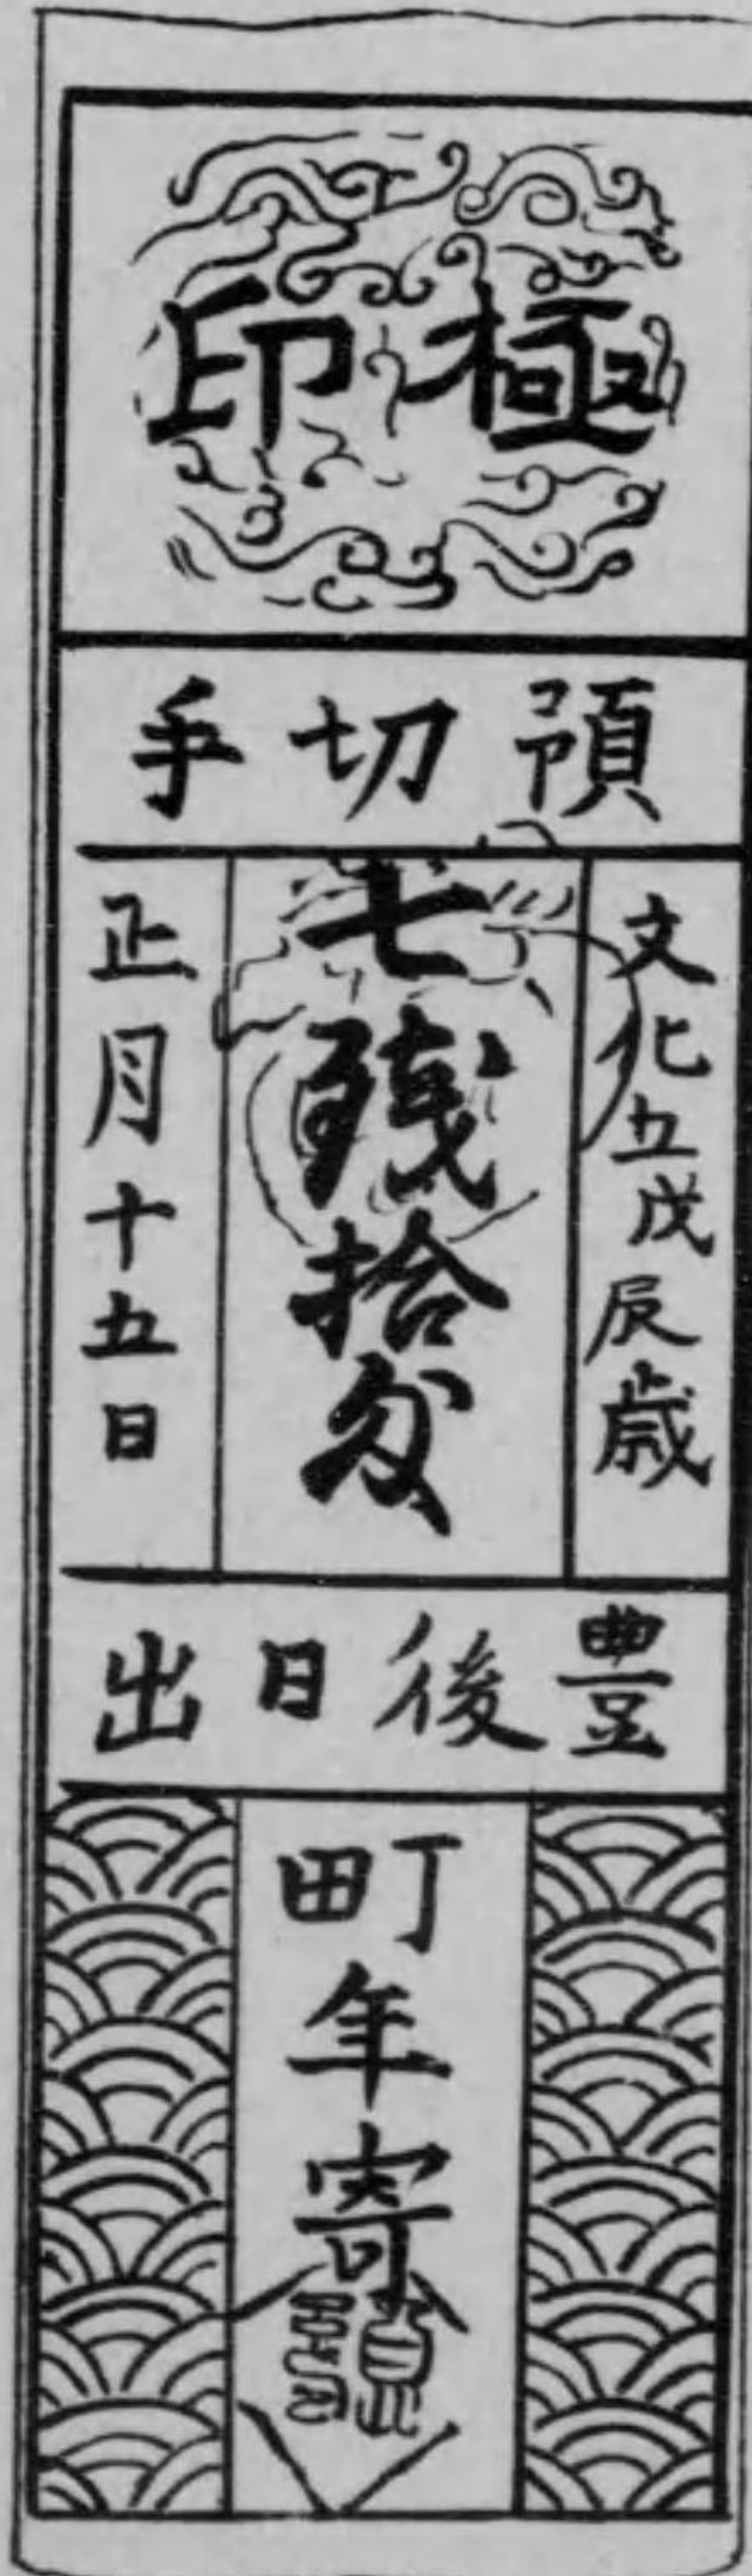 極印
預切手
文化五戊辰歳
七銭拾匁
正月十五日
豊後日出
町年寄